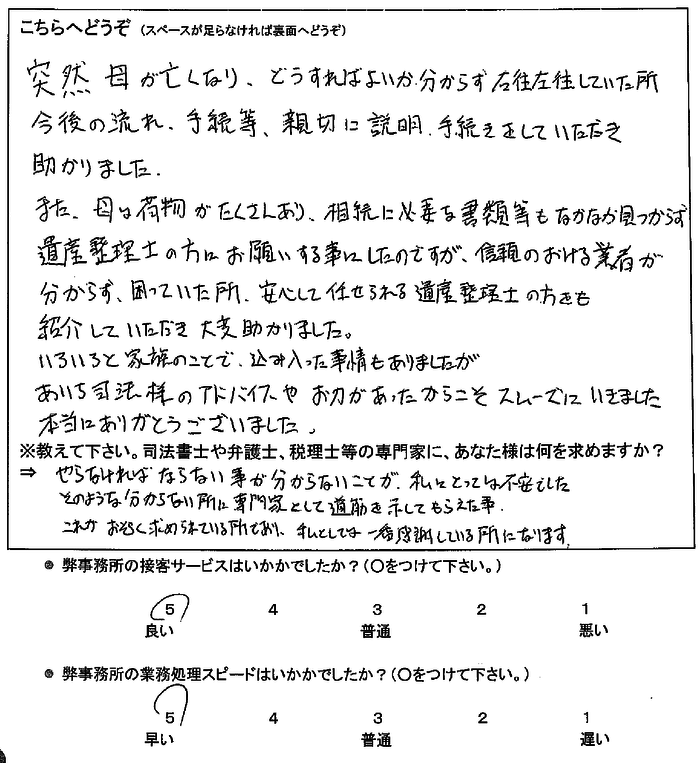 こちらへどうぞ（スペースが足らなければ裏面へどうぞ）
突然 母が亡くなり、どうすればよいか分からず 右往左往していた所
今後の流れ、手続等、親切に説明、手続きをしていただき
助かりました。
また、母は荷物がたくさんあり、相続に必要な書類等もなかなか見つからず
遺産整理士の方にお願いする事にしたのですが、信頼のおける業者が
分からず、困っていた所、安心して任せられる遺産整理士の方をも
紹介していただき 大変助かりました。
いろいろと家族のことで、込み入った事情もありましたが
あいち司法様のアドバイスや お力があったからこそ スムーズにいきました
本当にありがとうございました。
※教えて下さい。司法書士や弁護士、税理士等の専門家に、あなた様は何を求めますか？
⇒ やらなければならない事が分からないことが、私にとっては不安でした
そのような分からない所に専門家として道筋を示してもらえた事、
これが おそらく求められている所であり、私としては 一番感謝している所になります。
● 弊事務所の接客サービスはいかかでしたか？（〇をつけて下さい。）
5 4 3 2 1
良い 普通 悪い
● 弊事務所の業務処理スピードはいかかでしたか？（〇をつけて下さい。）
5 4 3 2 1
早い 普通 遅い